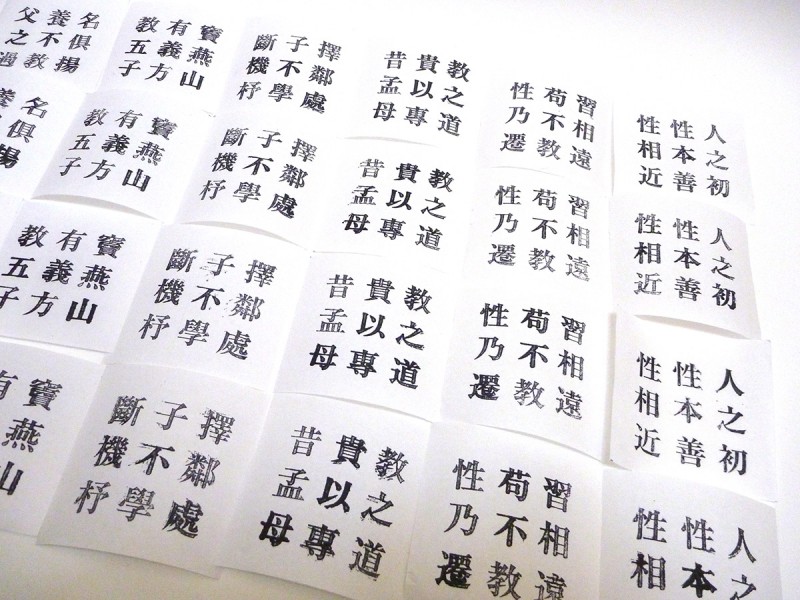 人之初
性本善
性相近
習相遠
苟不教
性乃遷
教之道
貴以專
昔孟母
擇鄰處
子不學
斷機杼
竇燕山
有義方
教五子
名俱揚
養不教
父之過
人之初
性本善
性相近
習相遠
苟不教
性乃遷
教之道
貴以專
昔孟母
擇鄰處
子不學
斷機杼
竇燕山
有義方
教五子
名俱揚
養
人之初
性本善
性相近
習相遠
苟不教
性乃遷
教之道
貴以專
昔孟母
擇鄰處
子不學
斷機杼
竇燕山
有義方
教五子
人之
性本
性相
習相遠
苟不教
性乃遷
教之道
貴以專
昔孟母
擇鄰處
子不學
斷機杼
竇燕山
有